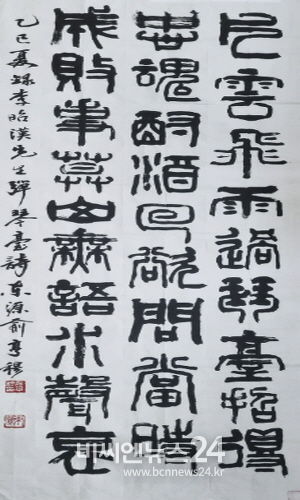 片雲飛雨過琴臺招得
忠魂酹酒回欲問當時
成敗事莫山無語水聲哀
乙巳夏錄李昭漢先生彈琴臺詩東源俞亨穆
비씨엔뉴스24
www.bcnnews24.kr